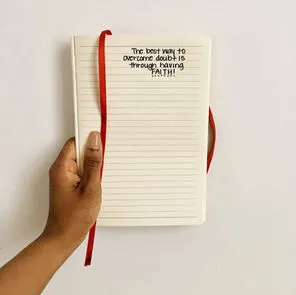 The best way to
overcome doubt is
through having
FAITH!